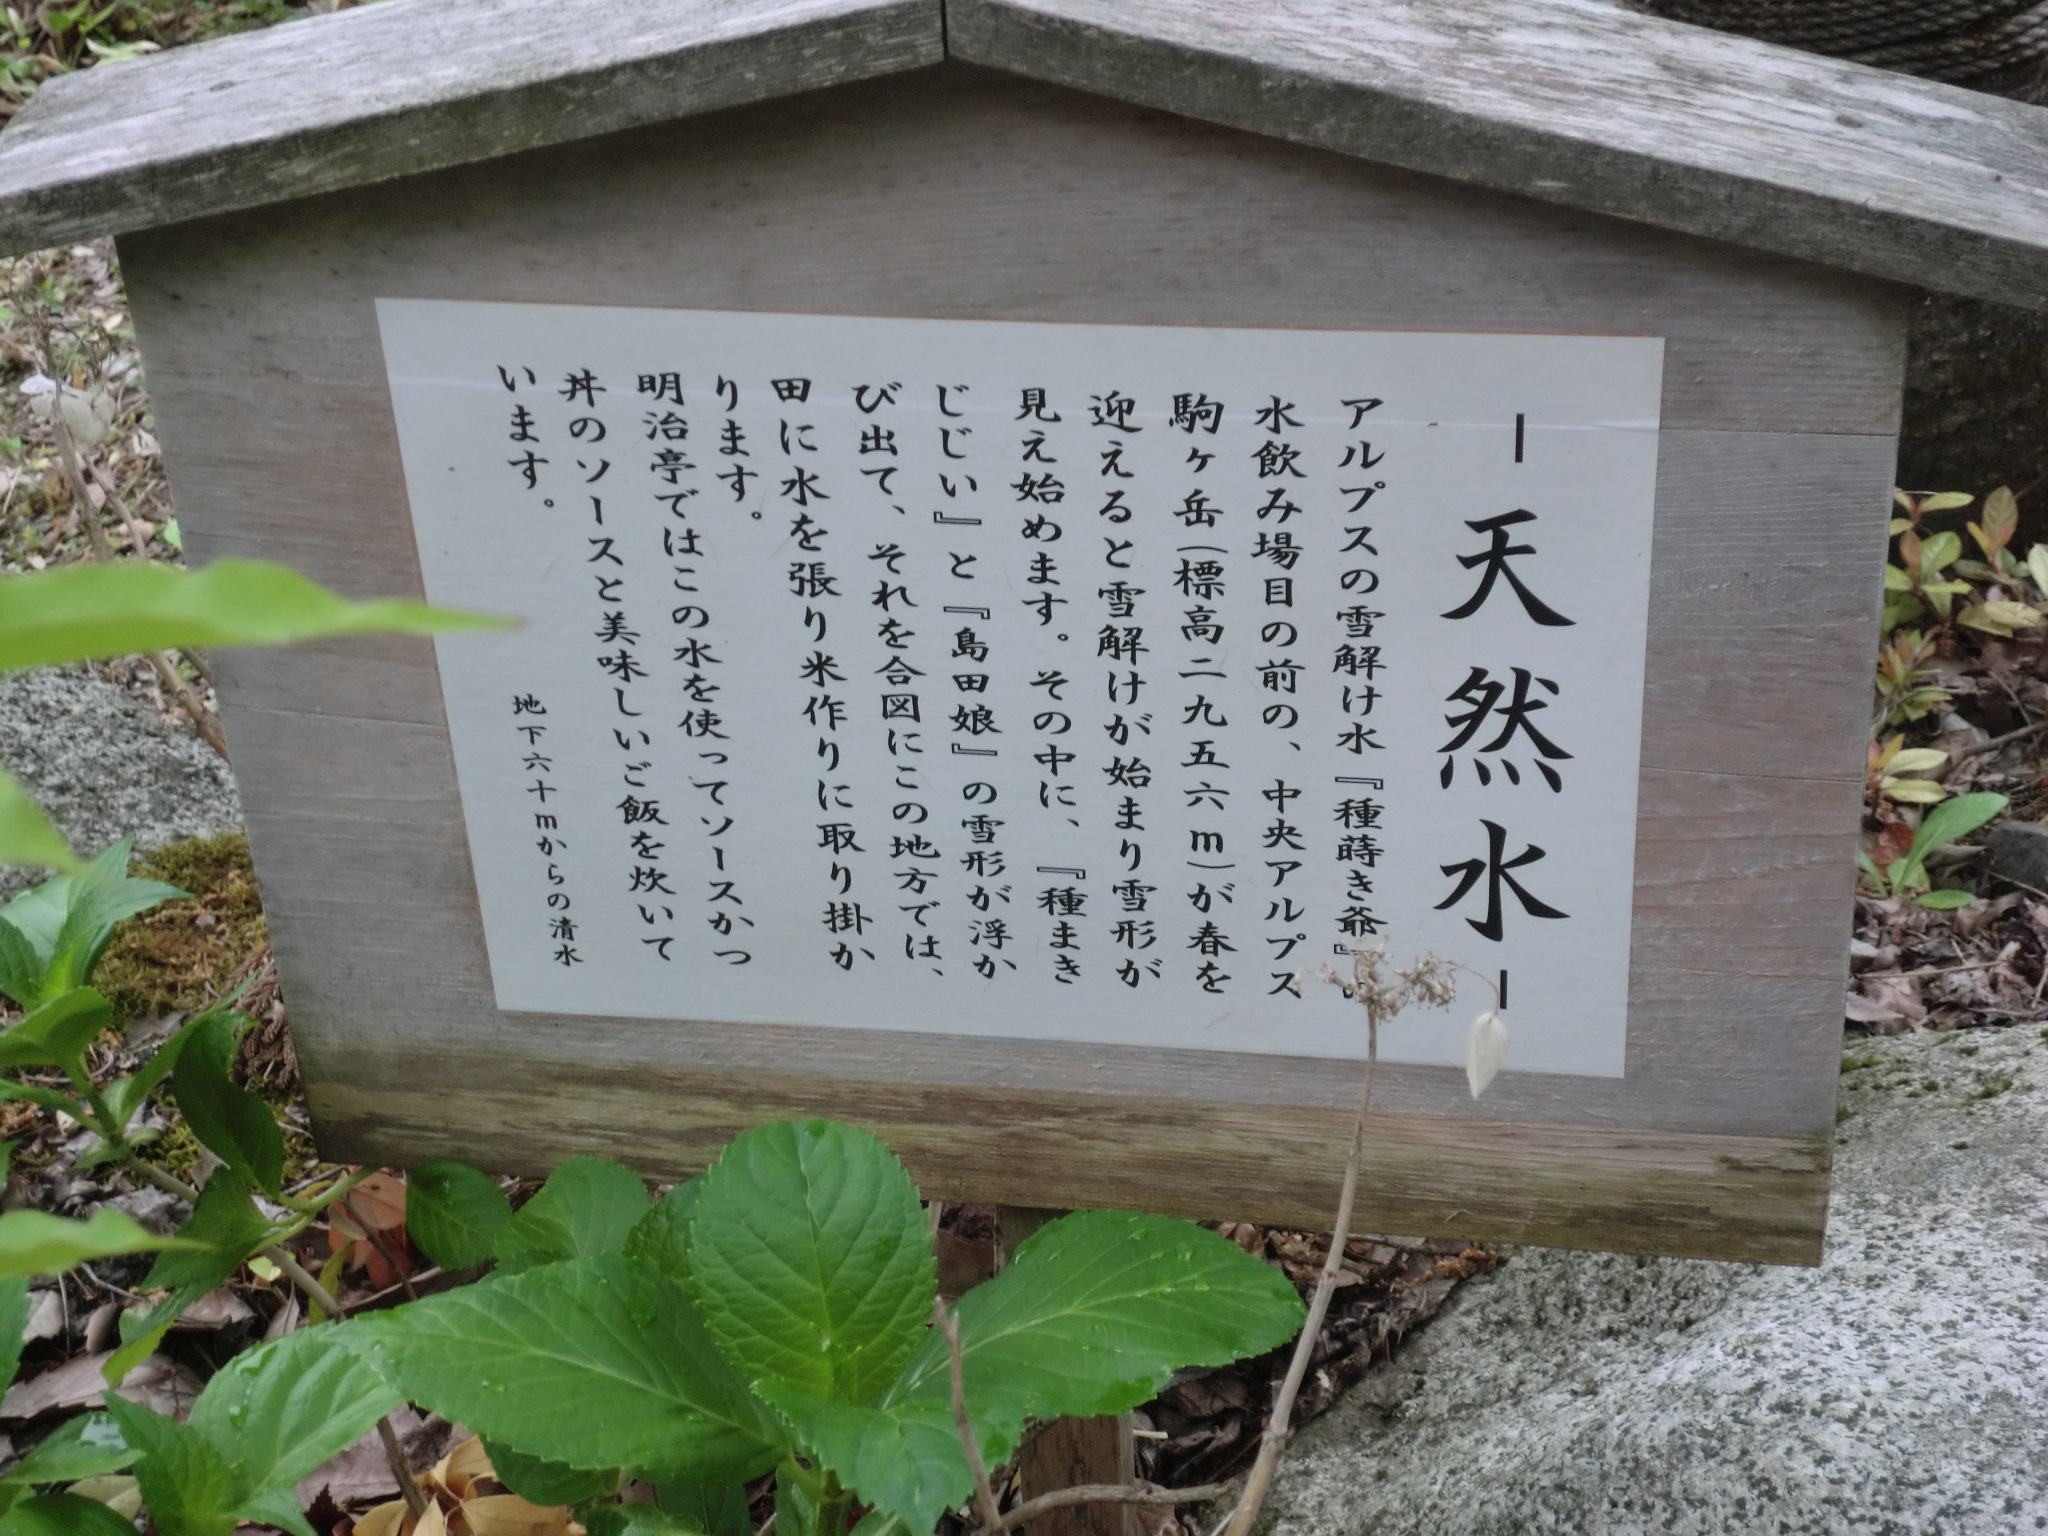 －天然水－
アルプスの雪解け水『種蒔き爺』
水飲み場目の前の、中央アルプス
駒ヶ岳(標高二九五六m)が春を
迎えると雪解けが始まり雪形が
見え始めます。その中に、『種まき
じじい』と『島田娘』の雪形が浮か
び出て、それを合図にこの地方では、
田に水を張り米作りに取り掛か
ります。
明治亭ではこの水を使ってソースかつ
丼のソースと美味しいご飯を炊いて
います。
地下六十mからの清水